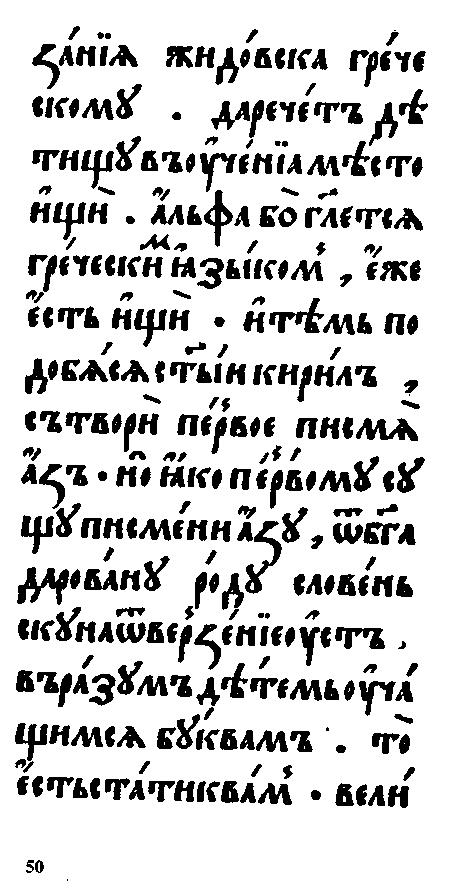 ꙁа́нїѧ жидо́вска гре́че
скомꙋ . даречéтъ дѣ
тищꙋ въѹче́нїамѣ́сто
и҆щѝ . а҆́льфа бо̀ гл҃етсѧ
гре́ческиⷨ ꙗ҆зы́ком , є҆́же
є҆́сть и҆щѝ . и҆тѣ́мь по
добѧ́сѧ ст҃ы́и кири́лъ ,
сътворѝ пе́рвое писмѧ̀
а҆́зъ . но̑ ꙗ҆́ко пе́рвомꙋ сꙋ
щꙋ́ писмени а҆́зꙋ , ѿбг҃а
дарова́нꙋ ро́дꙋ слове́нь
скꙋ наѿверзе́нїе ѹ҆стъ .
въра́зꙋмъ дѣ́темь ѹ҆ча́
щимсѧ бꙋ́квамъ . то̀
є҆́сть ста́ти ква́м . вели́
50